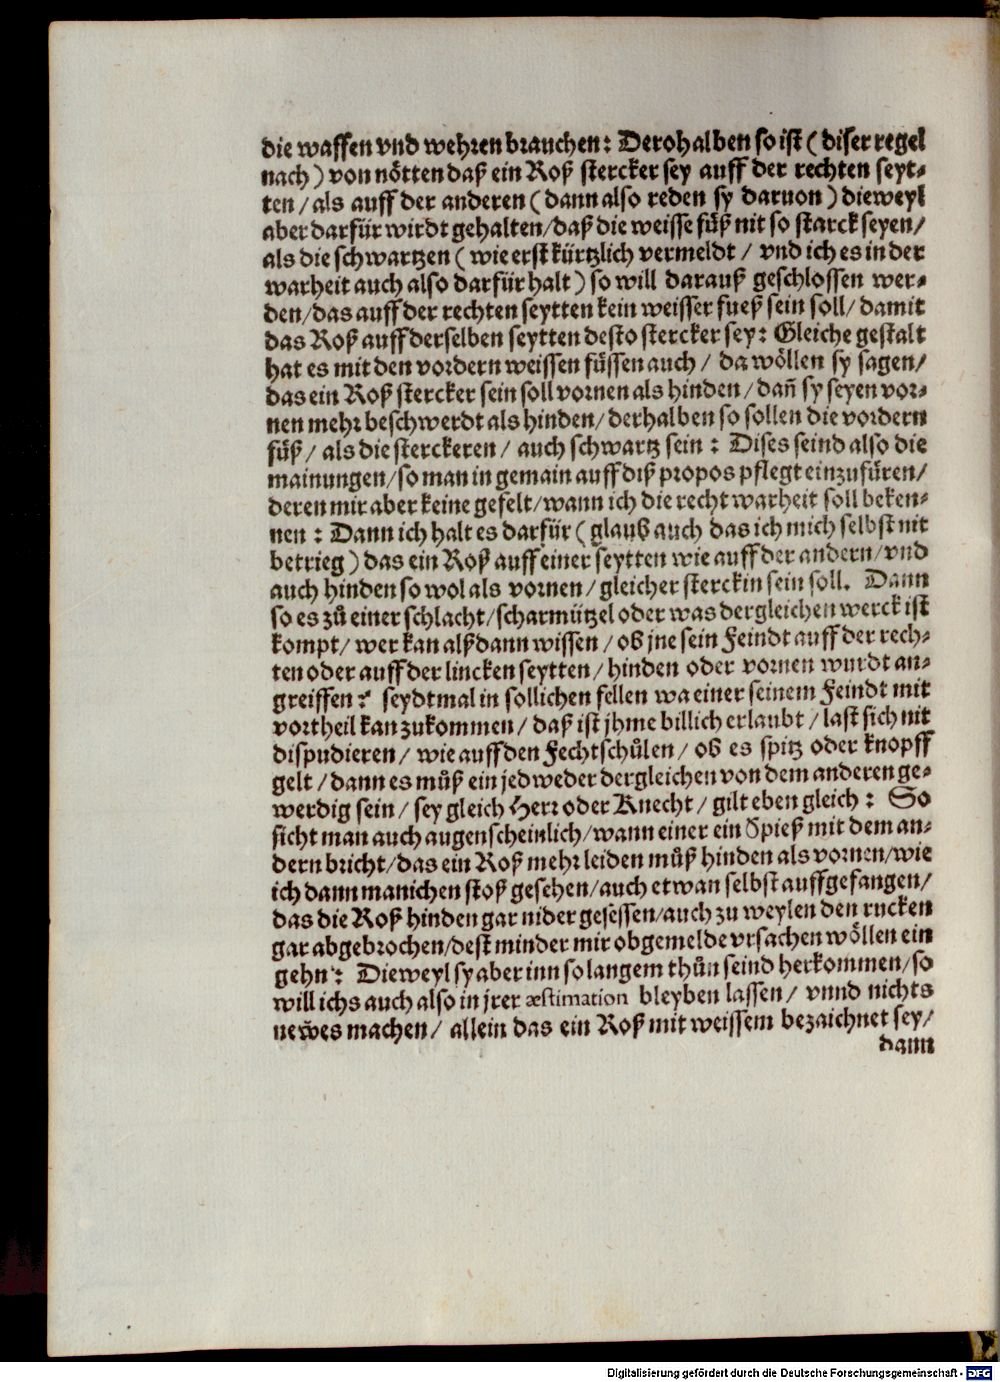 die waffen vnd wehren brauchen: Derohalben so ist ( diser regel
nach ) von nötten daß ein Roß stercker sey auff der rechten seyt-
ten / als auff der anderen ( dann also reden sy daruon ) dieweyl
aber darfür wirdt gehalten / daß die weisse füß nit so starck seyen /
als die schwartzen ( wie erst kürtzlich vermeldt / vnd ich es in der
warheit auch also darfür halt ) so will darauß geschlossen wer-
den / das auff der rechten seytten kein weisser fueß sein soll / damit
das Roß auff derselben seytten desto stercker sey: Gleiche gestalt
hat es mit den vordern weissen füssen auch / da wöllen sy sagen /
das ein Roß stercker sein soll vornen als hinden / dañ sy seyen vor-
nen mehr beschwerdt als hinden / derhalben so sollen die vordern
füß / als die sterckeren / auch schwartz sein : Dises seind also die
mainungen / so man in gemain auff diß propos pflegt einzufüren /
deren mir aber keine gefelt / wann ich die recht warheit soll beken-
nen : Dann ich halt es darfür ( glaub auch das ich mich selbst nit
betrieg ) das ein Roß auff einer seytten wie auff der andern / vnd
auch hinden so wol als vornen / gleicher sterckin sein soll. Dann
so es zů einer schlacht / scharmützel oder was dergleichen werck ist
kompt / wer kan alßdann wissen / ob jne sein Feindt auff der rech-
ten oder auff der lincken seytten / hinden oder vornen wurdt an-
greiffen ? seydtmal in sollichen fellen wa einer seinem Feindt mit
vortheil kan zukommen / daß ist jhme billich erlaubt / last sich nit
dispudieren / wie auff den Fechtschůlen / ob es spitz oder knopff
gelt / dann es můß ein jedweder dergleichen von dem anderen ge-
werdig sein / sey gleich Herr oder Knecht / gilt eben gleich : So
sicht man auch augenscheinlich / wann einer ein Spieß mit dem an-
dern bricht / das ein Roß mehr leiden můß hinden als vornen / wie
ich dann manichen stoß gesehen / auch etwan selbst auffgefangen /
das die Roß hinden gar nider gesessen / auch zu weylen den rucken
gar abgebrochen / dest minder mir obgemelde vrsachen wöllen ein
gehn : Dieweyl sy aber inn so langem thůn seind herkommen / so
will ichs auch also in jrer æstimation bleyben lassen / vnnd nichts
newes machen / allein das ein Roß mit weissem bezaichnet sey /
dann
Digitalisierung gefördert durch die Deutsche Forschungsgemeinschaft - DFG